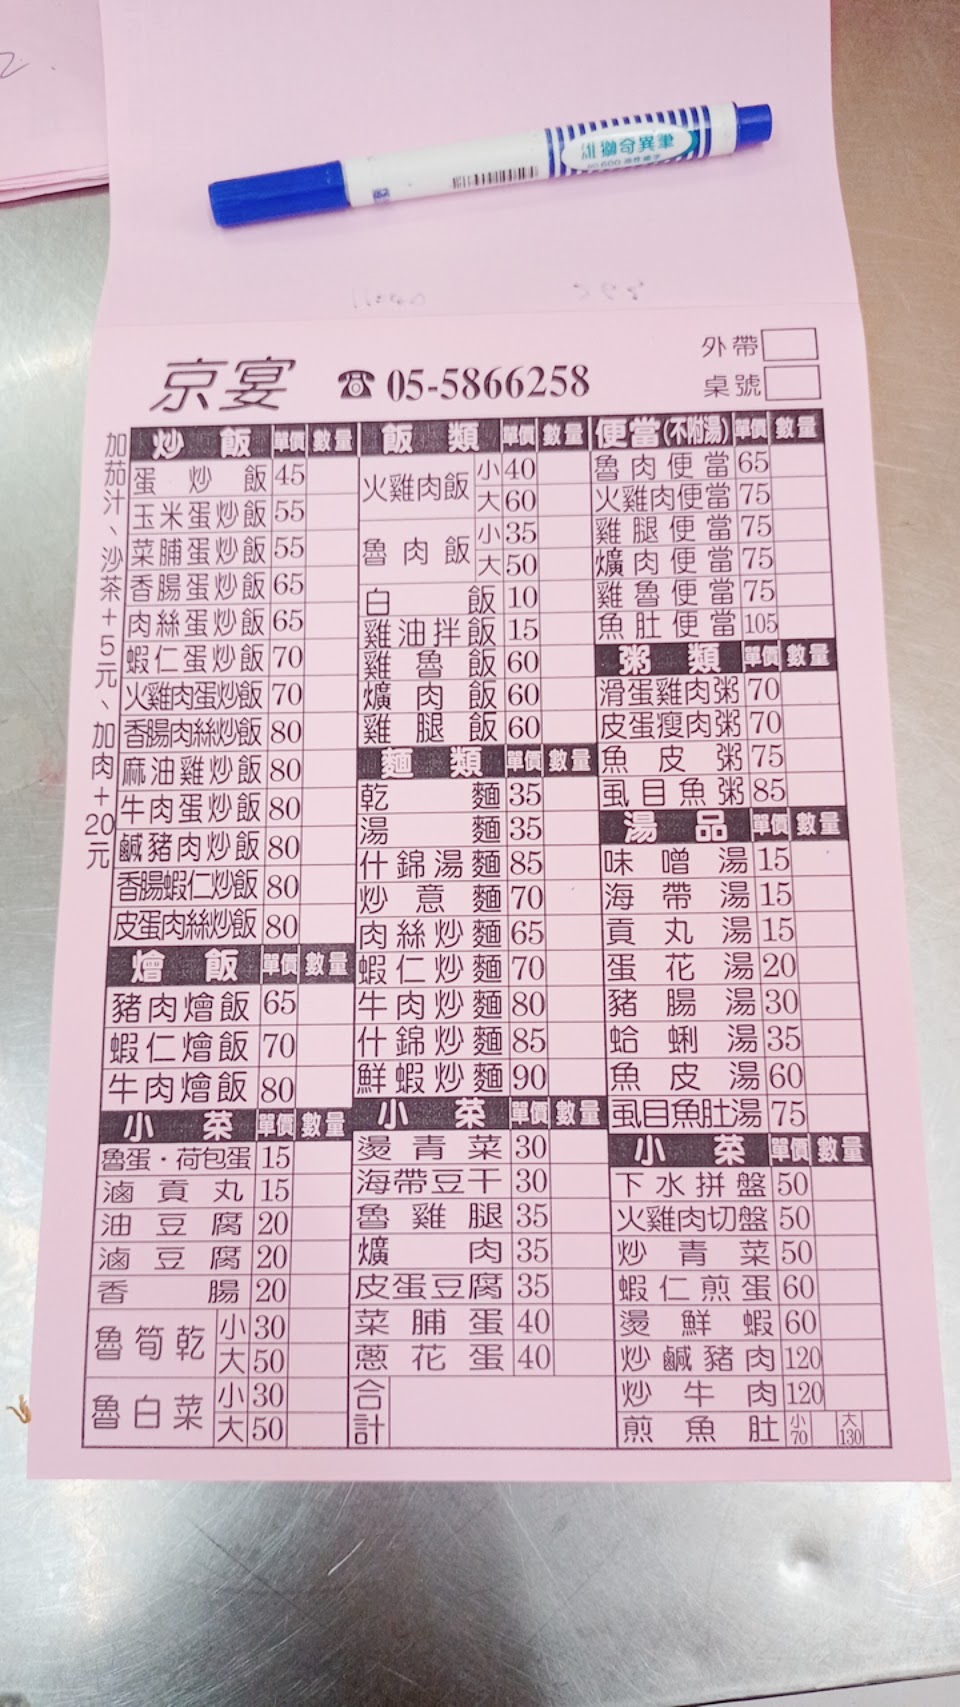 雄獅奇異筆
NO.600
京宴 ☎ 05-5866258
外帶
桌號
加茄汁、沙茶+5元、加肉+20元
炒飯 單價 數量
蛋炒飯 45
玉米蛋炒飯 55
菜脯蛋炒飯 55
香腸蛋炒飯 65
肉絲蛋炒飯 65
蝦仁蛋炒飯 70
火雞肉蛋炒飯 70
香腸肉絲炒飯 80
麻油雞炒飯 80
牛肉蛋炒飯 80
鹹豬肉炒飯 80
香腸蝦仁炒飯 80
皮蛋肉絲炒飯 80
燴飯 單價 數量
豬肉燴飯 65
蝦仁燴飯 70
牛肉燴飯 80
小菜 單價 數量
魯蛋·荷包蛋 15
滷貢丸 15
油豆腐 20
滷豆腐 20
香腸 20
魯筍乾 小 30
大 50
魯白菜 小 30
大 50
飯類 單價 數量
火雞肉飯 小 40
大 60
魯肉飯 小 35
大 50
白飯 10
雞油拌飯 15
雞魯飯 60
爌肉飯 60
雞腿飯 60
麵類 單價 數量
乾麵 35
湯麵 35
什錦湯麵 85
炒意麵 70
肉絲炒麵 65
蝦仁炒麵 70
牛肉炒麵 80
什錦炒麵 85
鮮蝦炒麵 90
小菜 單價 數量
燙青菜 30
海帶豆干 30
魯雞腿 35
爌肉 35
皮蛋豆腐 35
菜脯蛋 40
蔥花蛋 40
合計
便當(不附湯) 單價 數量
魯肉便當 65
火雞肉便當 75
雞腿便當 75
爌肉便當 75
雞魯便當 75
魚肚便當 105
粥類 單價 數量
滑蛋雞肉粥 70
皮蛋瘦肉粥 70
魚皮粥 75
虱目魚粥 85
湯品 單價 數量
味噌湯 15
海帶湯 15
貢丸湯 15
蛋花湯 20
豬腸湯 30
蛤蜊湯 35
魚皮湯 60
虱目魚肚湯 75
小菜 單價 數量
下水拼盤 50
火雞肉切盤 50
炒青菜 50
蝦仁煎蛋 60
燙鮮蝦 60
炒鹹豬肉 120
炒牛肉 120
煎魚肚 小 70 大 130